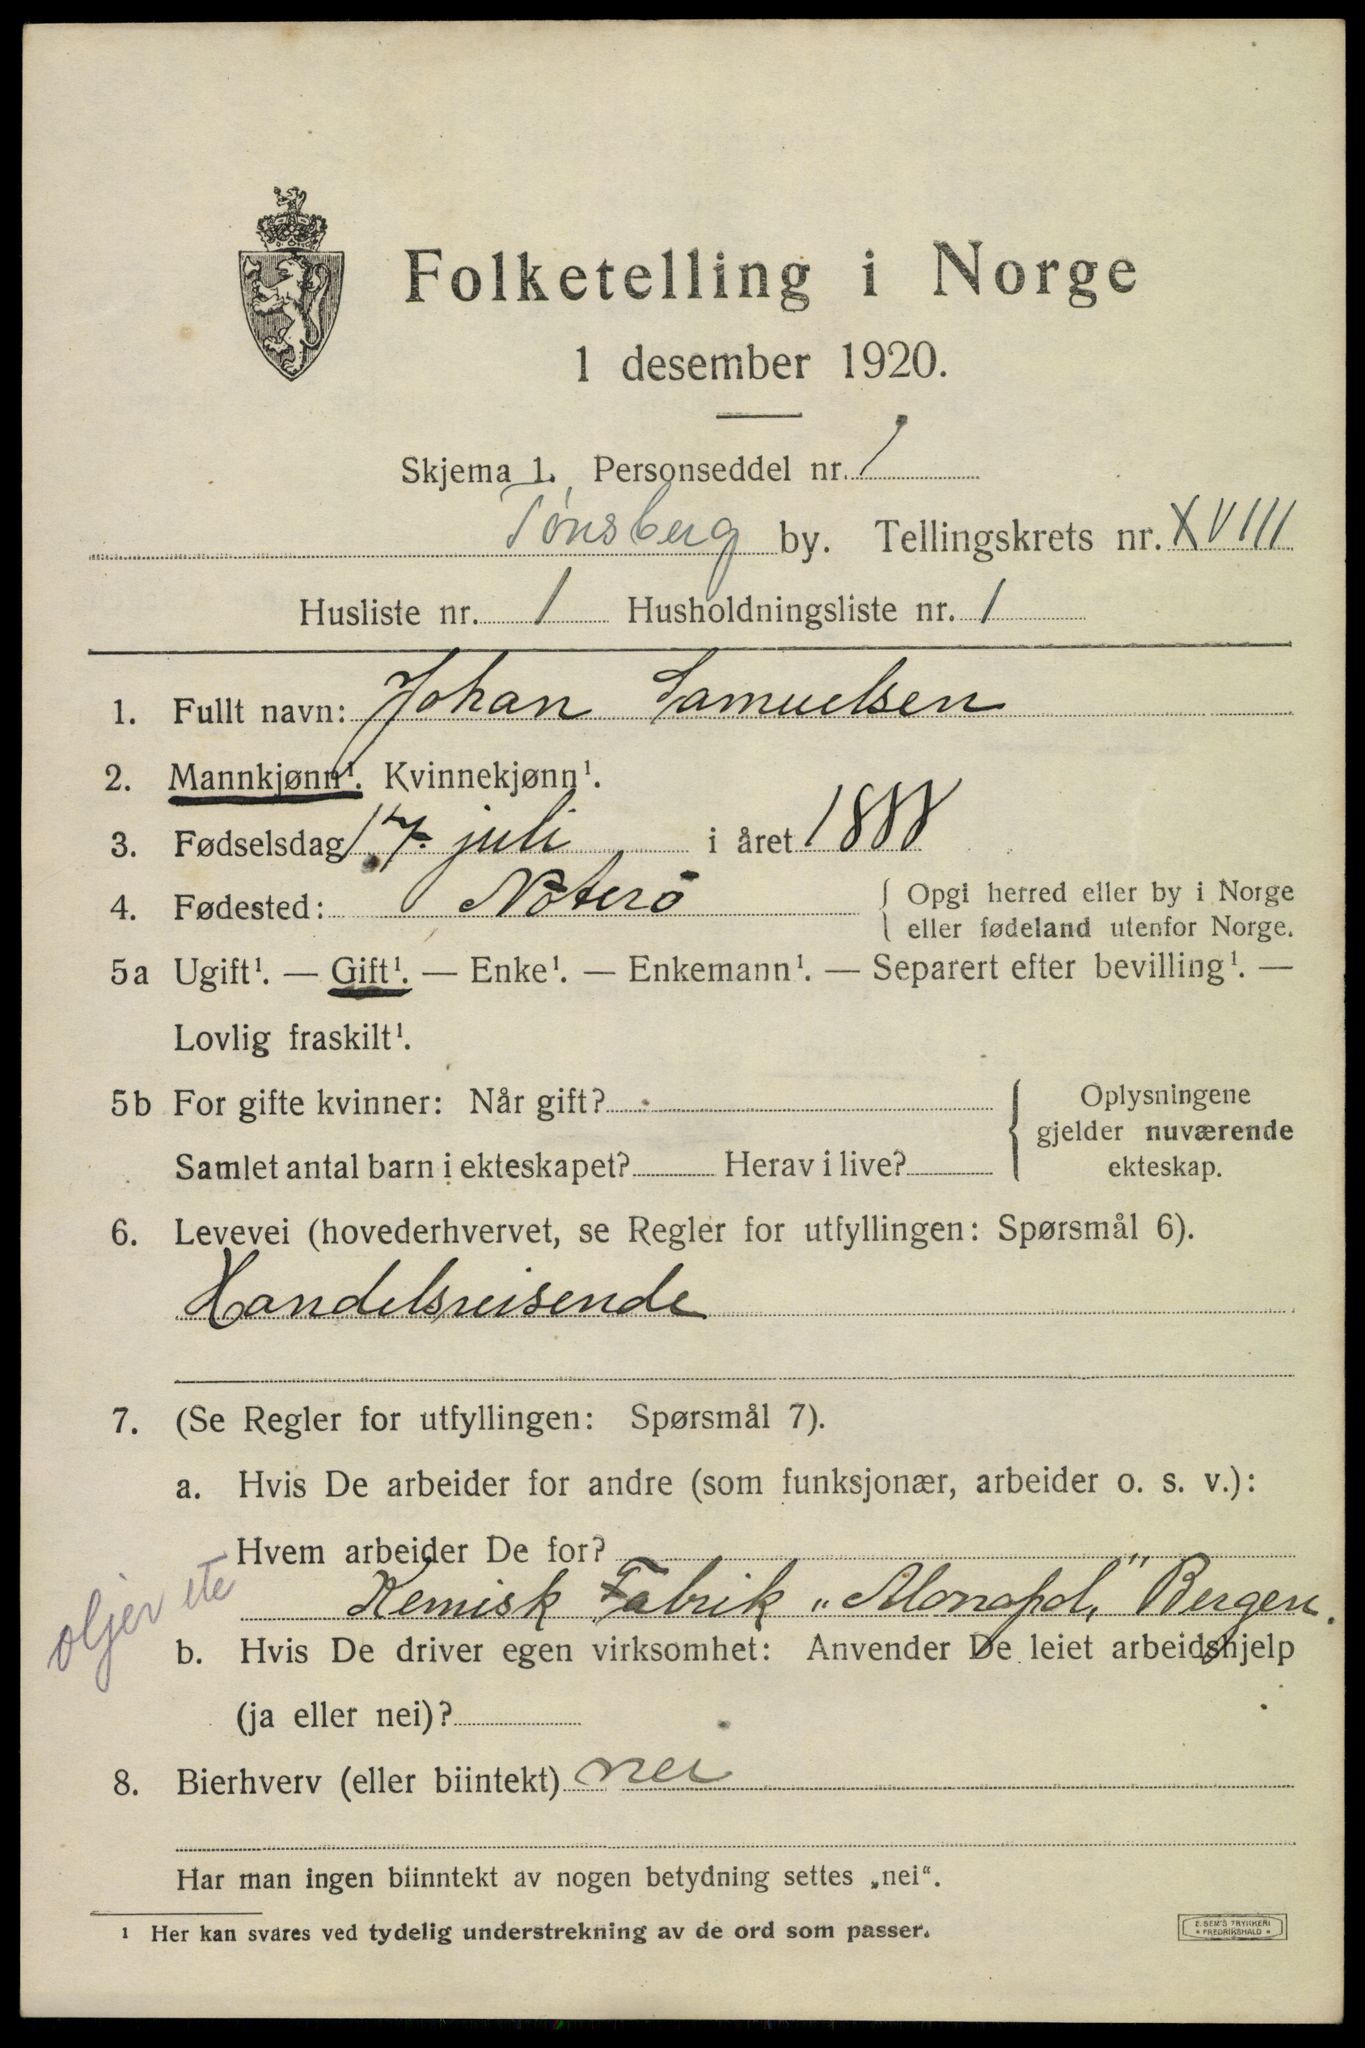 Folketelling i Norge
1 desember 1920.
Skjema 1. Personseddel nr. 1
Tønsberg by. Tellingskrets nr. XVIII
Husliste nr. 1 Husholdningsliste nr. 1
1. Fullt navn: Johan Samuelsen
2. Mannkjønn¹. Kvinnekjønn¹.
3. Fødselsdag 17. juli i året 1888
4. Fødested: Nøterö { Opgi herred eller by i Norge
eller fødeland utenfor Norge.
5a Ugift¹. — Gift¹. — Enke¹. — Enkemann¹. — Separert efter bevilling¹. —
Lovlig fraskilt¹.
5b For gifte kvinner: Når gift? { Oplysningene
gjelder nuværende
Samlet antal barn i ekteskapet? Herav i live? ekteskap.
6. Levevei (hovederhvervet, se Regler for utfyllingen: Spørsmål 6).
Handelsreisende
7. (Se Regler for utfyllingen: Spørsmål 7).
a. Hvis De arbeider for andre (som funksjonær, arbeider o. s. v.):
Hvem arbeider De for?
Kemisk Fabrik „Monopol" Bergen.
oljer etc
b. Hvis De driver egen virksomhet: Anvender De leiet arbeidshjelp
(ja eller nei)?
8. Bierhverv (eller biintekt) nei
Har man ingen biinntekt av nogen betydning settes „nei".
¹ Her kan svares ved tydelig understrekning av de ord som passer.
E. SEM'S TRYKKERI
* FREDRIKSHALD *